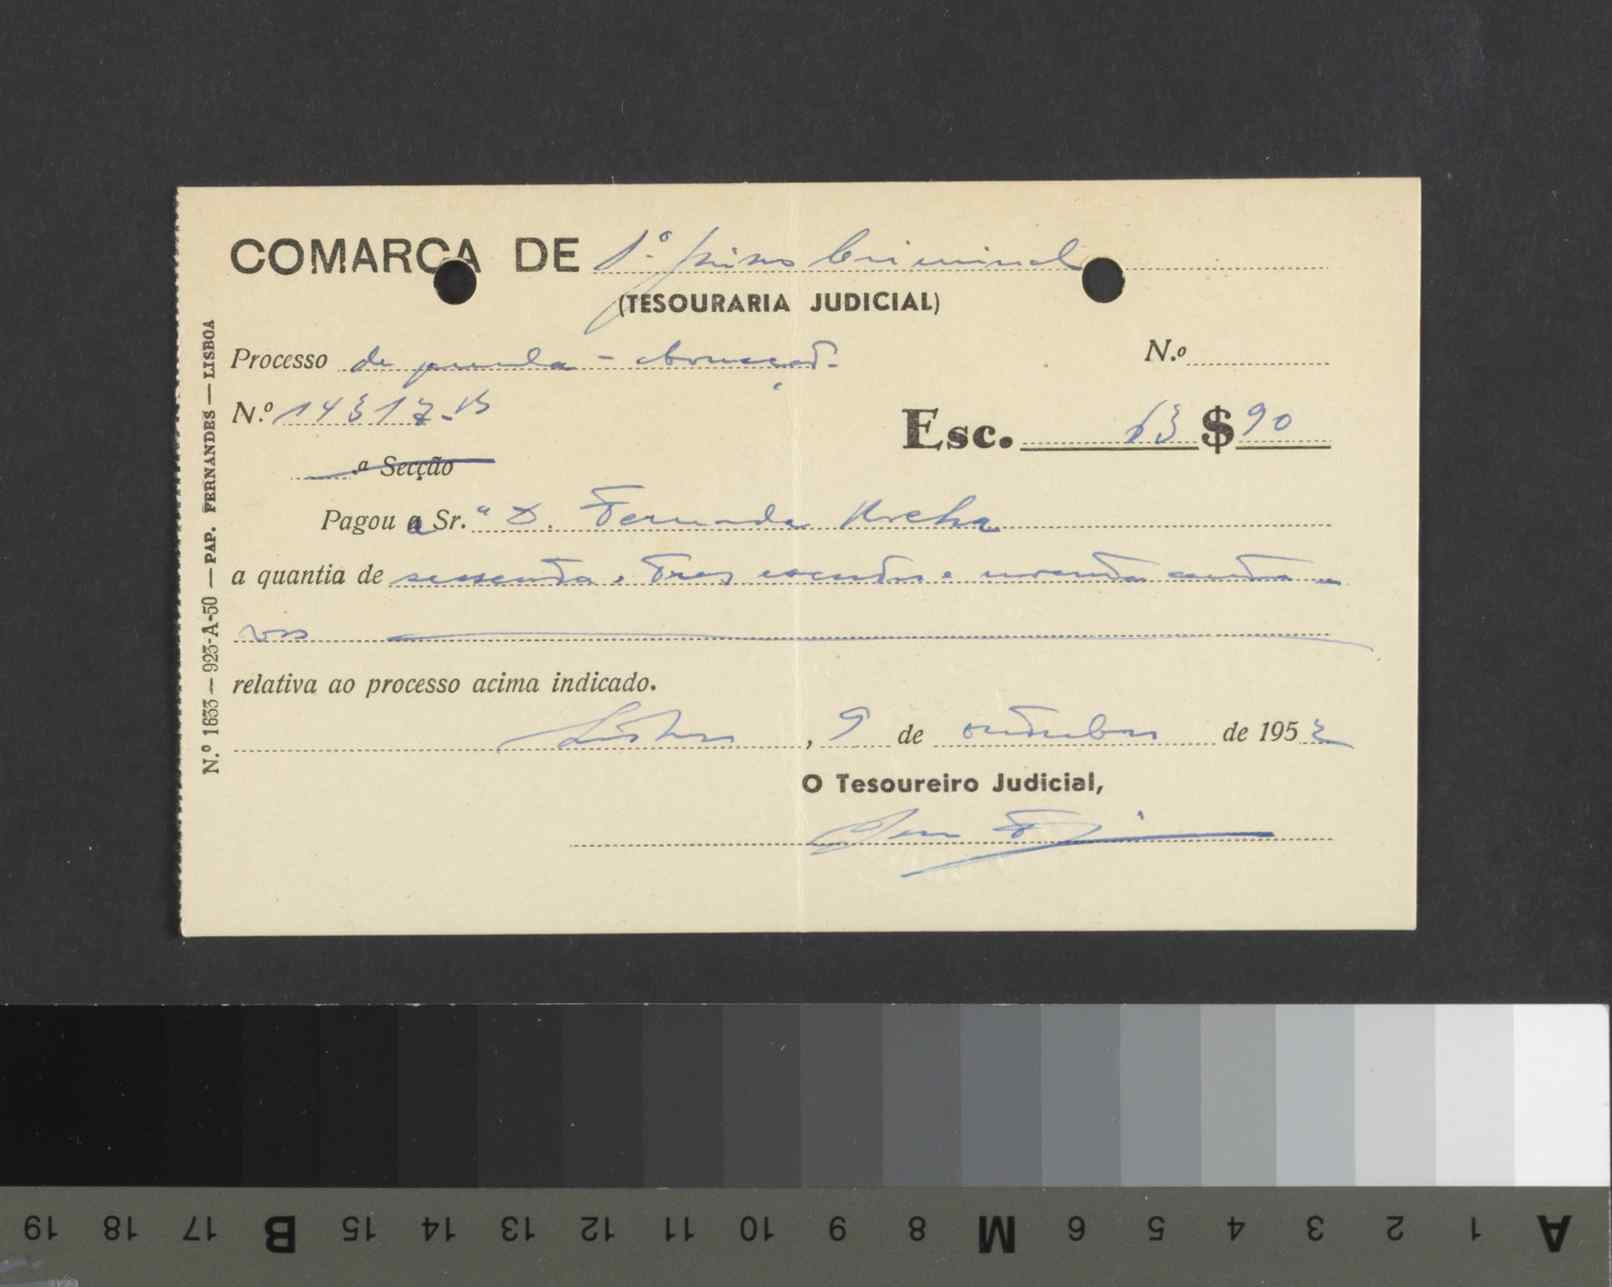 COMARCA DE 1º Juizo Criminal
(TESOURARIA JUDICIAL)
Processo de N.º
N.º 14317-B
Esc. 63 $ 90
.ª Secção
Pagou a Sr.ª D. Fernanda Rocha
a quantia de sessenta e tres escudos e noventa centa
vos
relativa ao processo acima indicado.
Lisboa, 9 de outubro de 1953
O Tesoureiro Judicial,
N.º 1633 — 923-A-50 — PAP. FERNANDES — LISBOA
19 18 17 B 15 14 13 12 11 10 9 8 M 6 5 4 3 2 1 A